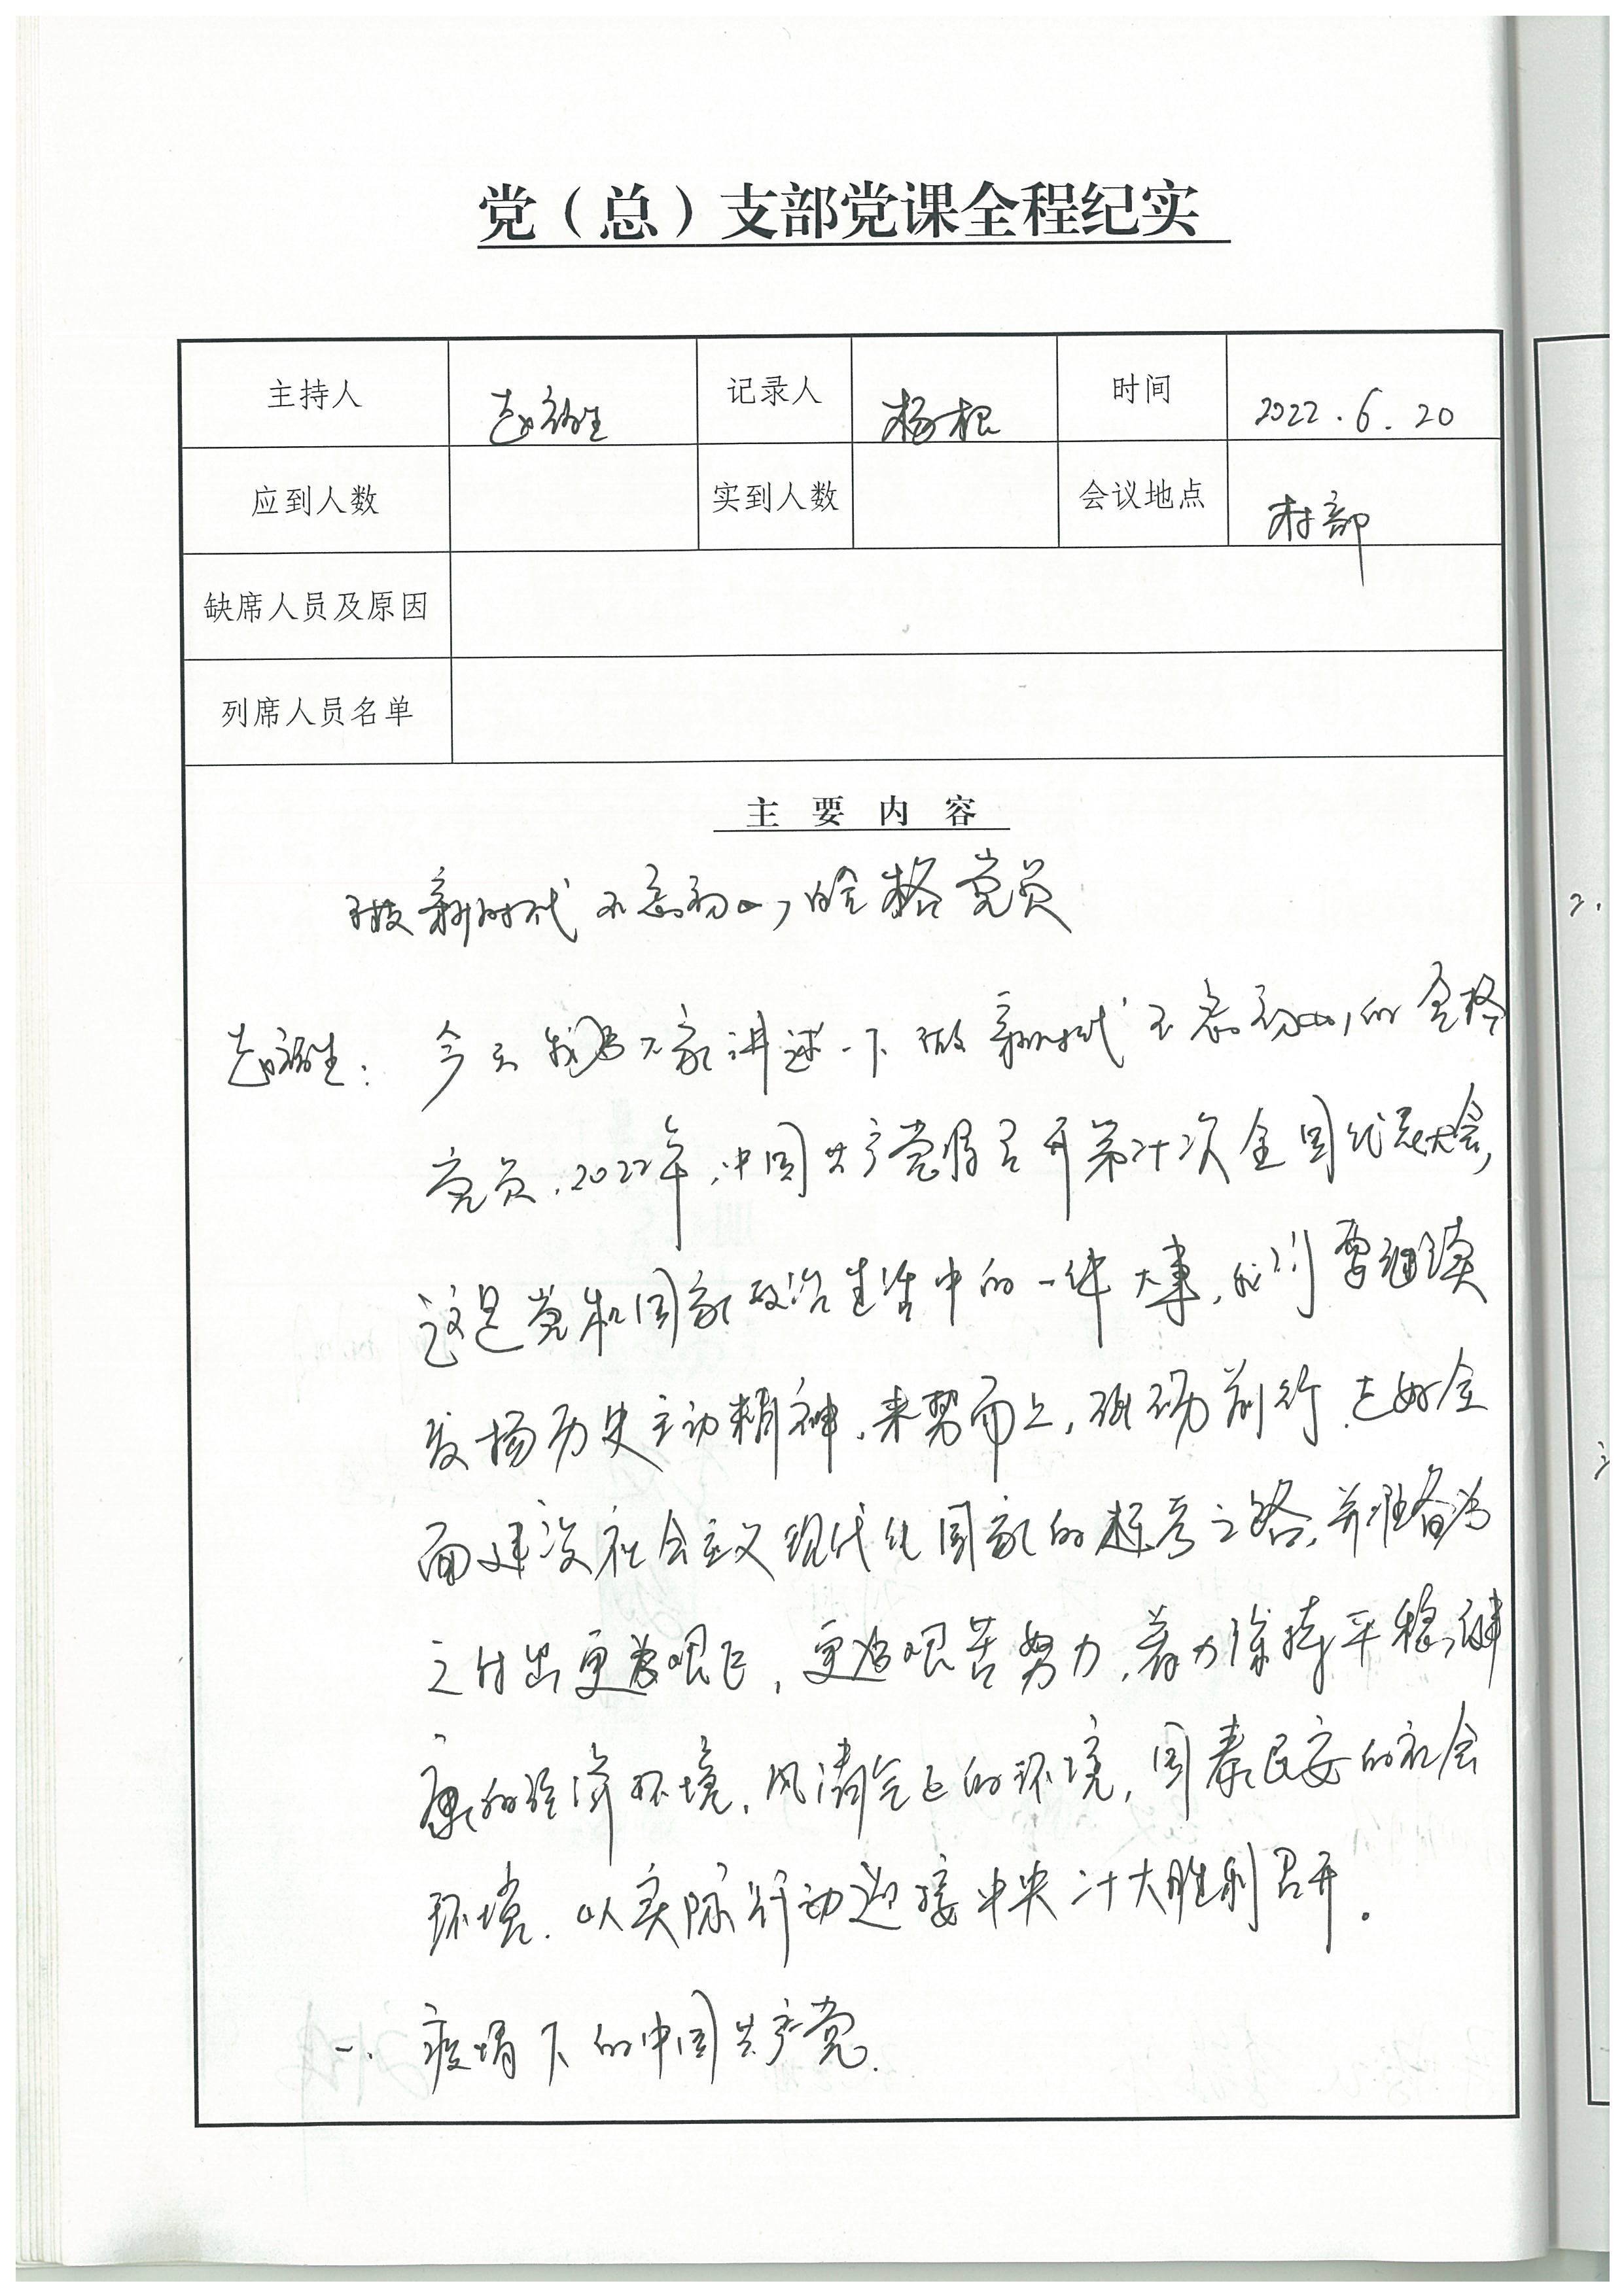 党（总）支部党课全程纪实
主持人 记录人 杨根 时间 2022.6.20
应到人数 实到人数 会议地点 村部
缺席人员及原因
列席人员名单
主要内容
做新时代不忘初心的合格党员
今天我为大家讲述一下做新时代不忘初心的合格
党员，2022年，中国共产党将召开第二十次全国代表大会，
这是党和国家政治生活中的一件大事，我们要继续
发扬历史主动精神，乘势而上，砥砺前行，走好全
面建设社会主义现代化国家的赶考之路，并准备为
之付出更为艰巨，更为艰苦努力，着力保持平稳健
康的经济环境，风清气正的环境，国泰民安的社会
环境，以实际行动迎接中央二十大胜利召开。
一、疫情下的中国共产党.
2.